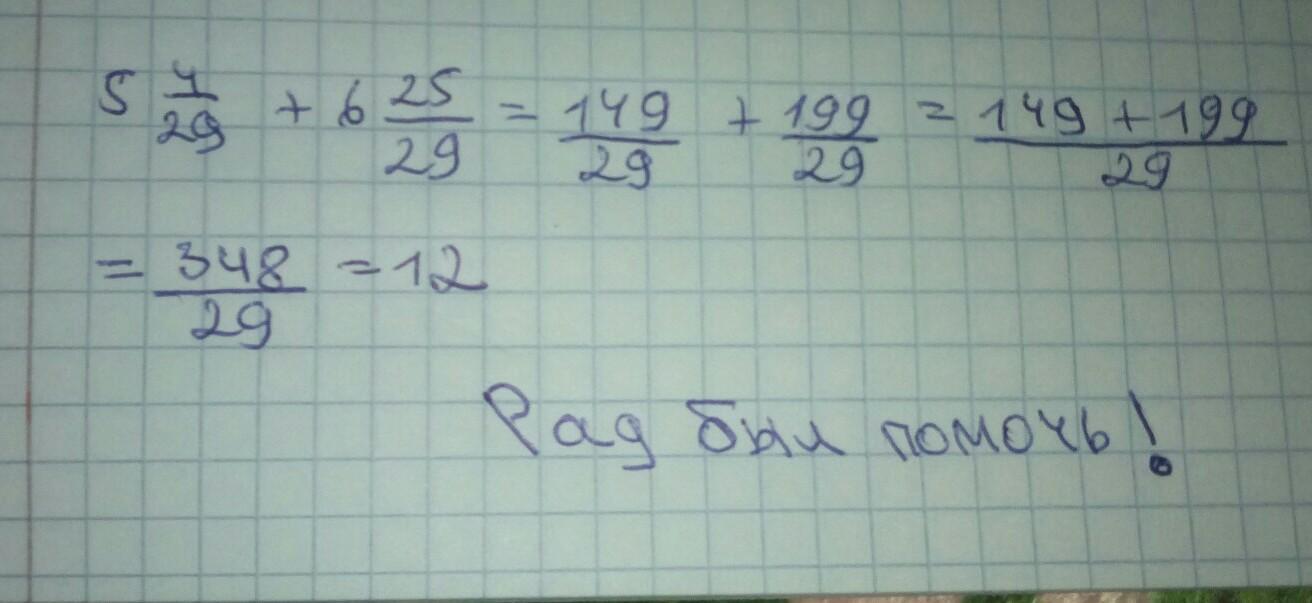 5 4/29 + 6 25/29 = 149/29 + 199/29 = 149 + 199/29
= 348/29 = 12
Рад был помочь!